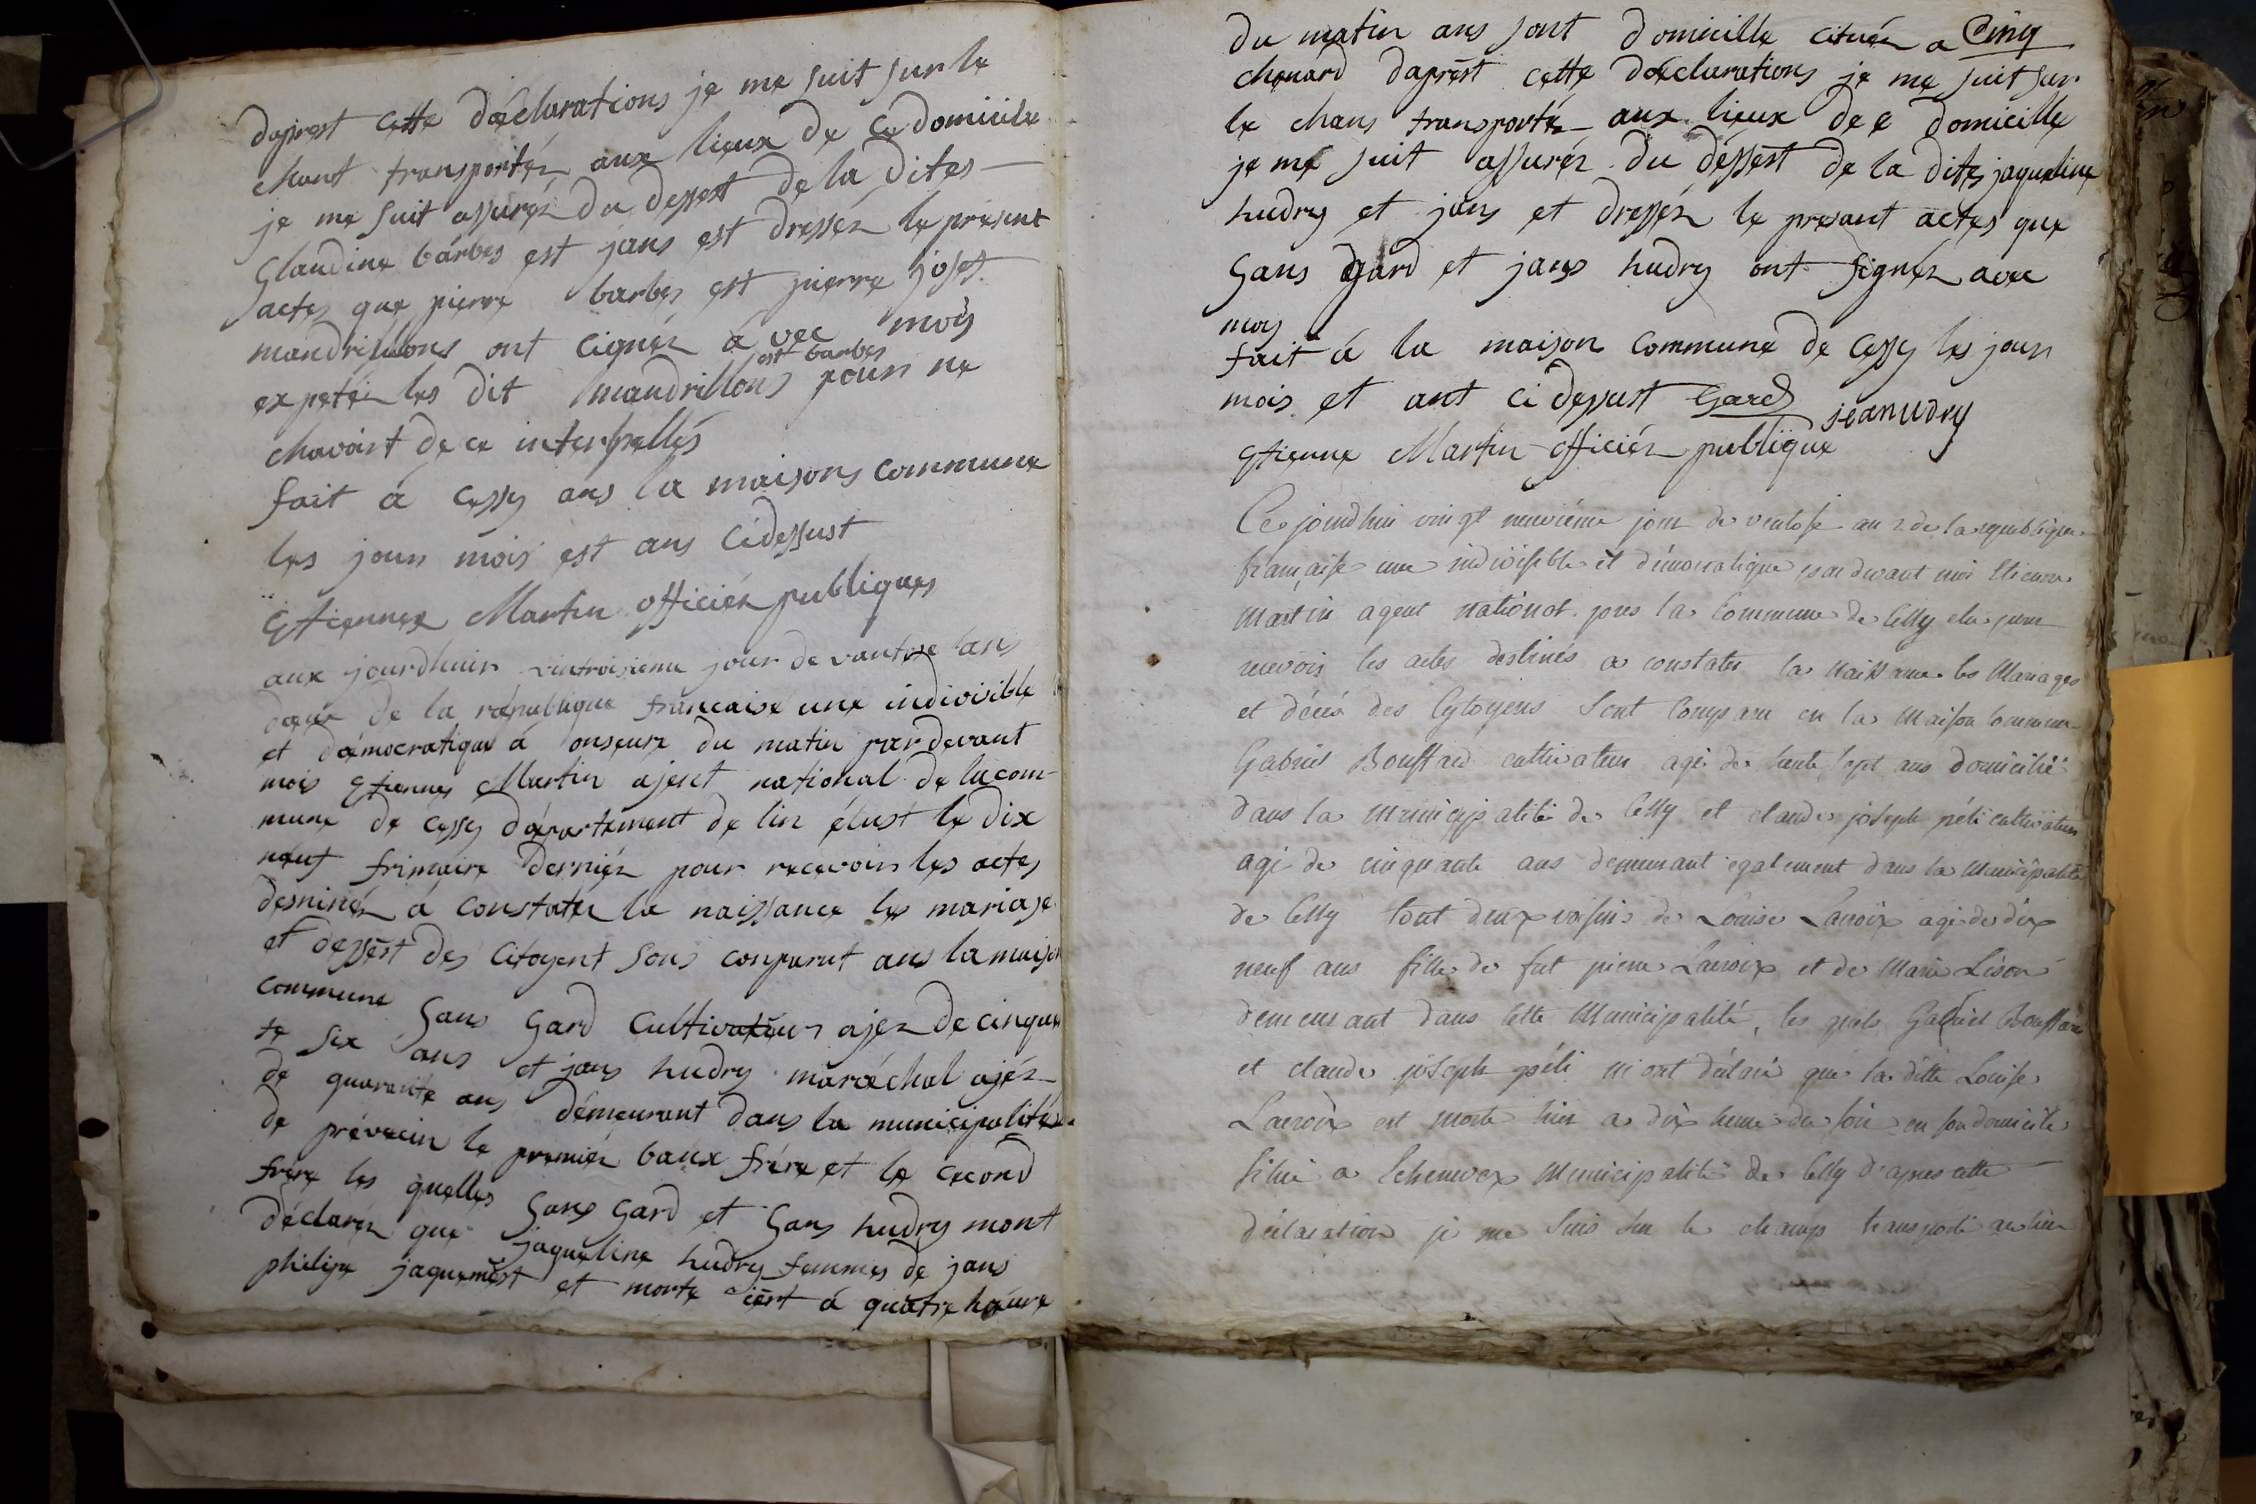 daprest cette déclarations je me suit sur le
chant transportéz aux lieux de ce domicile
je me suit assuréz du dessest de la dites
Claudine barbes est jans est dresséz le présent
actes que pierre barbes est pierre josef
mandrillons ont cignéz a vec moy
est barbes
exptéz les dit mandrillons pour ne
chavoirt de ce interpellés
fait á Cessy ans la maisons commune
les jour mois est ans Cidessust
Etiennes Martin officiéz publiques
aux jourdhuir vintroisieme jour de vantose lans
deux de la république francaise une indivisible
et démocratique á onseure du matin par devant
mois Etiennes Martin ajent national de la com-
mune de Cessy département de lin élust le dix
neuf frimaire derniéz pour recevoir les actes
destinéz á constater la naissance les mariaje
et dessest des Citoyent sons conparut ans la maison
commune Jans Gard Cultivateur ajez de cinquan
te six ans et jans hudry maréchal ajéz
de quarante ans démeurant dans la municipalitéz
de prévecin le premiéz baux frére et le cecond
frere les quelles Jans Gard et Jans hudry mont
déclaréz que jaqueline hudry femmes de jans
philipe jaquemest et morte iert á quatre heure
du matin ans sont domicille cituéz a Cinq
chenard daprest cette déclarations je me suit sur
le chans transportéz aux lieux de e domicille
je me suit assuréz du dessest de la dites jaqueline
hudry et jans et dresséz le presant actes que
Jans gard et jans hudry ont signéz avec
moy
fait á la maison Commune de Cessy les jour
mois et ant Ci dessust Gard
jean udry
Etienne Martin officiéz publique
Ce jourdhui vingt neuviéme jour de ventose an 2 de la republique
française une indivisible et démocratique par devant moi Etienne
Martin agent national pres la Commune de Cessy elu pour
recevoir les actes destinés a constater la Naissance les Mariages
et décés des Cytoyens Sont Comparu en la Maison Commune
Gabriel Boussard cultivateur agé de trente sept ans domicilié
dans la Municipalité de Cessy et claude joseph péli cultivateur
agé de cinquante ans demeurant egalement dans la Municipalité
de Cessy tout deux voisins de Louise Lacroix agé de dix
neuf ans fille de fut pierre Lacroix et de Marie Lison
demeurant dans Cette Municipalité, les quels Gabriel Boussard
et claude joseph péli m'ont déclaré que la ditte Louise
Lacroix est morte hier a dix heure du soir en son domicile
situé a Echenevex Municipalité de Cessy d'apres cette
déclaration je me suis sur le champs transporté au lieu